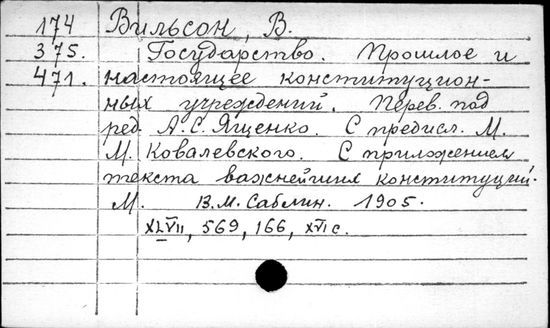 174 Вильсон, В.
375. Государство. Прошлое и
471. настоящее конституцион-
ных учреждений. Перев. под
ред. А.С. Ященко. С предисл. М.
М. Ковалевского. С приложением
текста важнейших конституций.
М. В.М. Саблин. 1905.
XLVII, 569, 166, XVI с.